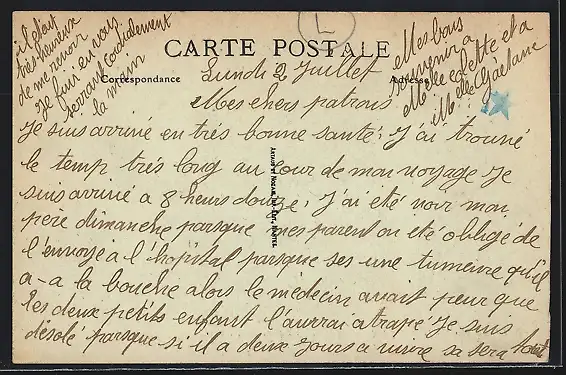 CARTE POSTALE
Correspondance
Adresse
Lundi 2 Juillet
Mes chers patrons
Je suis arrivé en trés bonne santé; J'ai trouvé
le temp trés long au cour de mon voyage Je
suis arrivé a 8 heurs douze, J'ai été voir mon
pere dimanche parsque mes parent on été obligé de
l'envoyé a l'hopital parsque ses une tumeure qu'il
a-a la bouche alors le médecin avait peur que
les deux petits enfant l'aurrai atrapé Je suis
désolé parsque si il a deux Jours a vivre sa sera tout
il était
très heureux
de me revoir
Je fini en vous
serrant cordialement
la main
Mes bons
souvenir a
Melle et a
Melle Gaëtane
L